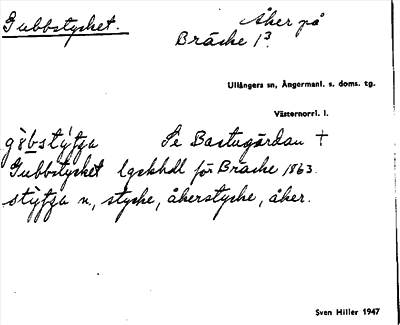 Gubbstycket.
Åker på
Bräcke 1³.
Ullångers sn, Ångermanl. s. doms. tg.
Västernorrl. l.
Se Bastugårdan †
Gubbstycket lgskhdl för Bräcke 1863.
n, stycke, åkerstycke, åker.
Sven Hiller 1947